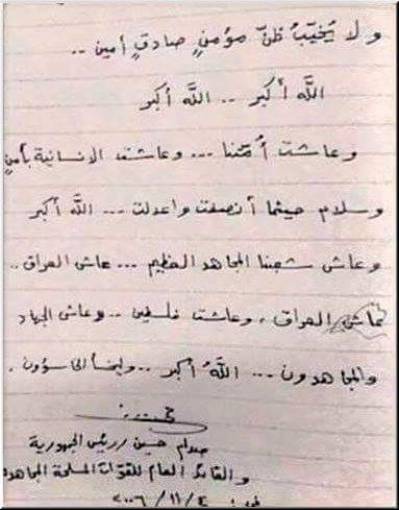 ولا يُخيّبُ ظنّ مؤمنٍ صادقٍ أمين ..
اللّه أكبر .. اللّه أكبر
وعاشت أمّتنا ... وعاشت الانسانية بأمنٍ
وسلام حيثما أنصفت واعدلت ... اللّه أكبر
وعاش شعبنا المجاهد العظيم ... عاش العراق ..
عاش العراق، وعاشت فلسطين .. وعاش الجهاد
والمجاهدون ... اللّهُ أكبر .. وليخسأ الخاسؤون .
صدام حسين / رئيس الجمهورية
والقائد العام للقوات المسلحة المجاهدة
في: ٤/١١/٢٠٠٦